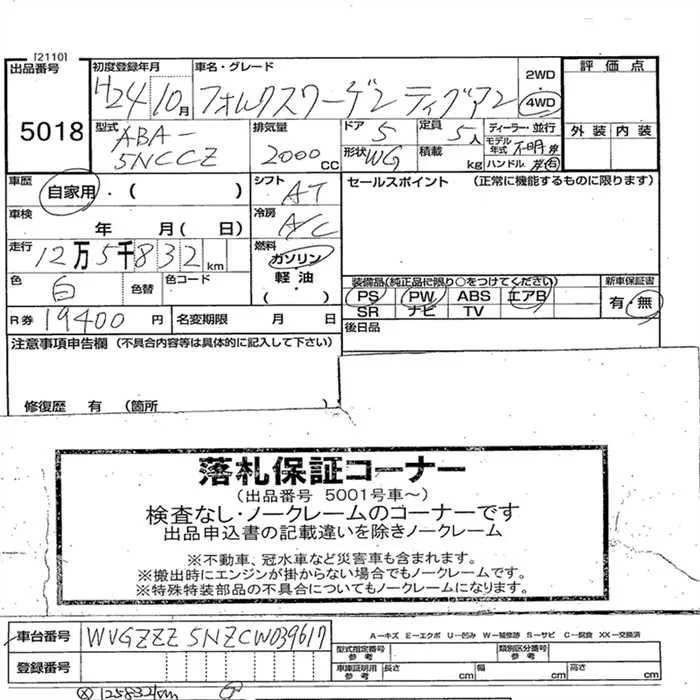 [2110]
出品番号 5018
初度登録年月 H24 10月
車名・グレード フォルクスワーゲン ティグアン
2WD 4WD
評価点
外装 内装
型式 ABA-5NCCZ
排気量 2000 CC
ドア 5
定員 5人
ディーラー・並行
形状 WG
積載 kg
モデル年式 不明
ハンドル 左 右
車歴 自家用・( )
シフト AT
セールスポイント (正常に機能するものに限ります)
車検 年 月( 日)
冷房 A/C
走行 12万5千832km
燃料 ガソリン 軽油 ( )
色 白 色替 色コード
装備品(純正品に限り○をつけてください)
新車保証書 有・無
PS PW ABS エアB
SR ナビ TV
R券 19400円
名変期限 月 日
後日品
注意事項申告欄 (不具合内容等は具体的に記入して下さい)
修復歴 有 (箇所 )
落札保証コーナー
(出品番号 5001号車~)
検査なし・ノークレームのコーナーです
出品申込書の記載違いを除きノークレーム
※不動車、冠水車など災害車も含まれます。
※搬出時にエンジンが掛からない場合でもノークレームです。
※特殊特装部品の不具合についてもノークレームになります。
車台番号 WVGZZZ5NZCW039617
A-キズ E-エクボ U-凹み W-補修跡 S-サビ C-腐食 XX-交換済
登録番号
型式指定番号 参考
類別区分番号 参考
車庫証明用 参考 長さ cm 幅 cm 高さ cm
125832km